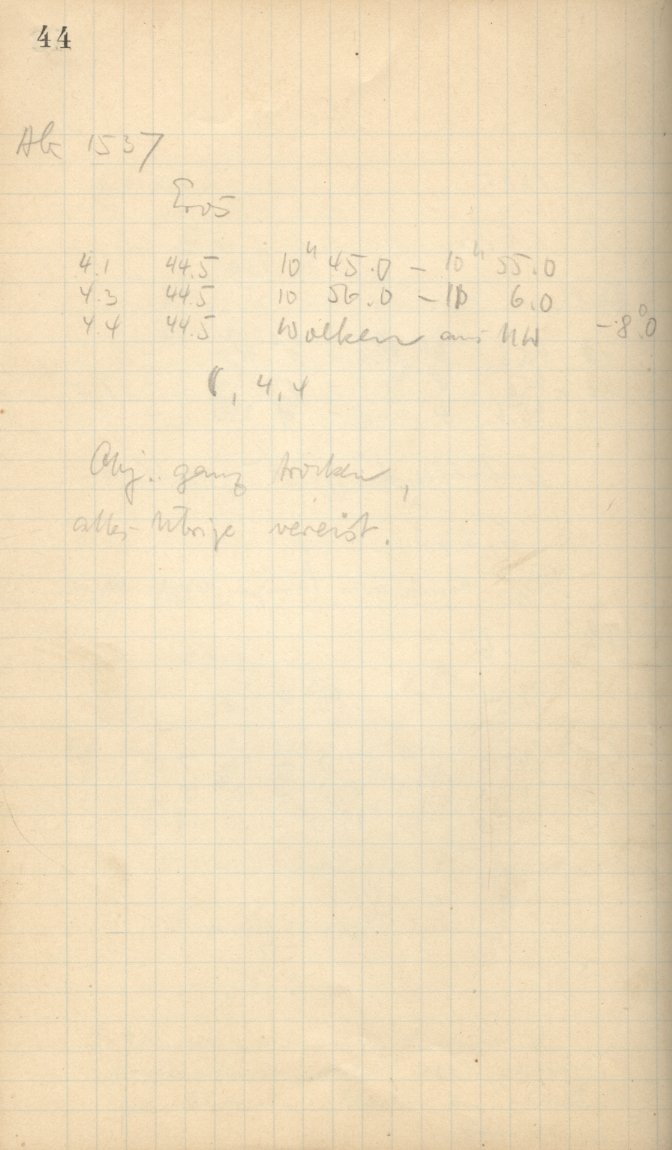 44
Ab 1537
Eros
4.1 44.5 10ʰ 45.0 – 10ʰ 55.0
4.3 44.5 10 56.0 – 11 6.0
4.4 44.5 Wolken aus NW – 8°.0
, 4, 4
Obj. ganz trocken,
alles Übrige vereist.